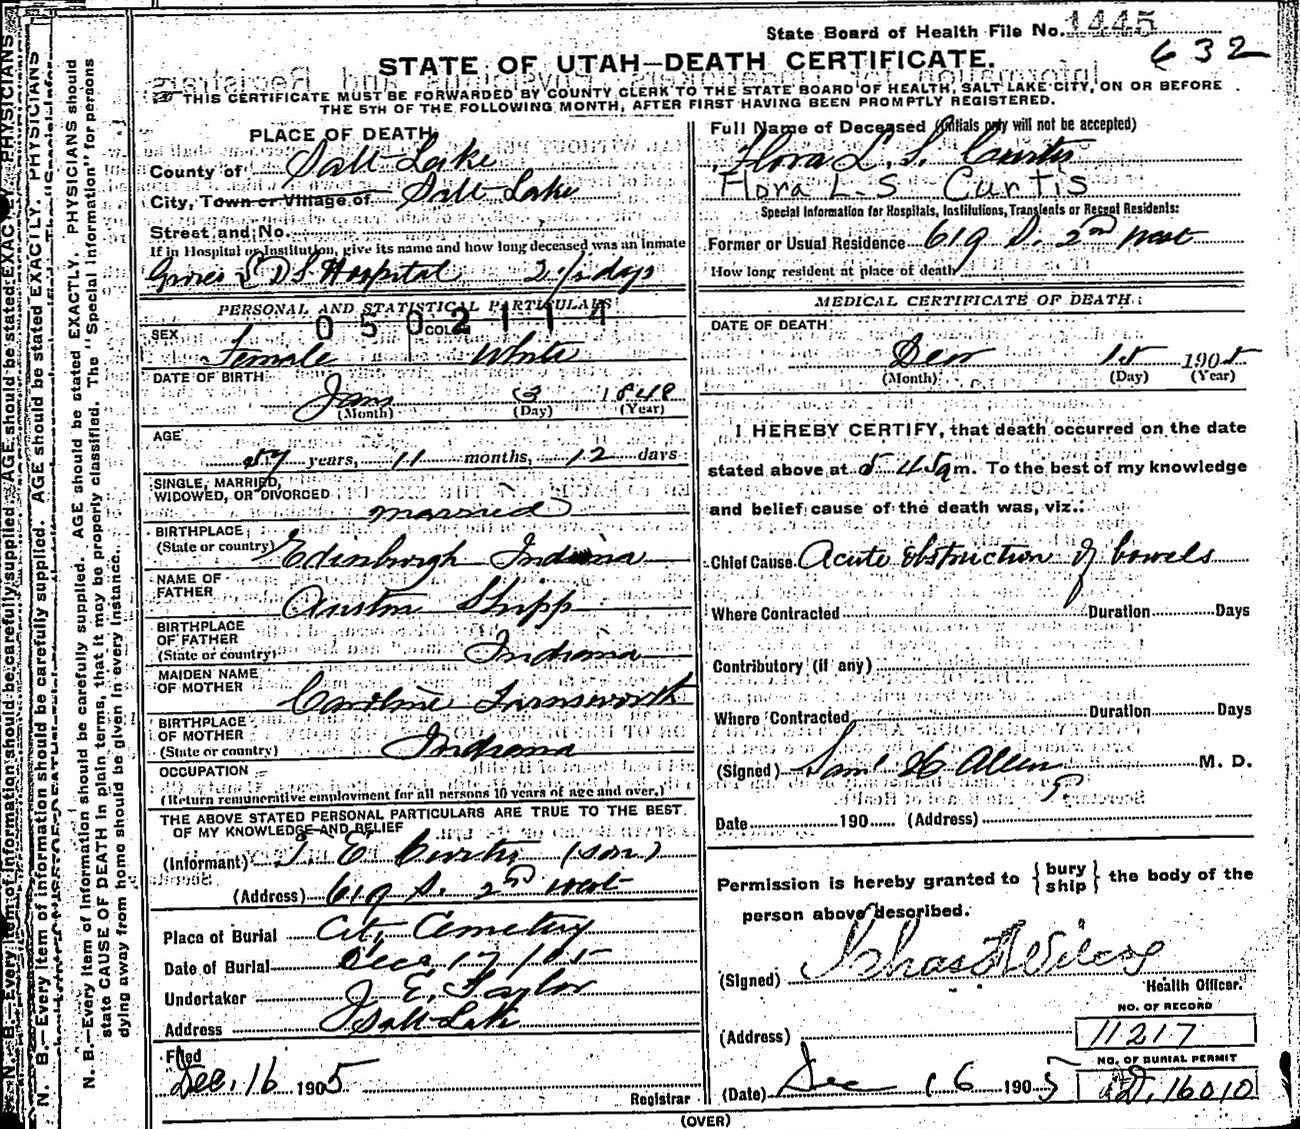 State Board of Health File No. 1445
632
STATE OF UTAH—DEATH CERTIFICATE.
THIS CERTIFICATE MUST BE FORWARDED BY COUNTY CLERK TO THE STATE BOARD OF HEALTH, SALT LAKE CITY, ON OR BEFORE
THE 5TH OF THE FOLLOWING MONTH, AFTER FIRST HAVING BEEN PROMPTLY REGISTERED.
PLACE OF DEATH
County of Salt Lake
City, Town or Village of Salt Lake
Street and No.
If in Hospital or Institution, give its name and how long deceased was an inmate
Groves L D S Hospital 2 1/2 days
PERSONAL AND STATISTICAL PARTICULARS
0502114
SEX Female COLOR White
DATE OF BIRTH
Jan 3 1848
(Month) (Day) (Year)
AGE
57 years, 11 months, 12 days
SINGLE, MARRIED,
WIDOWED, OR DIVORCED
married
BIRTHPLACE
(State or country) Edinburgh Indiana
NAME OF
FATHER Austin Shipp
BIRTHPLACE
OF FATHER
(State or country) Indiana
MAIDEN NAME
OF MOTHER Caroline Farnsworth
BIRTHPLACE
OF MOTHER
(State or country) Indiana
OCCUPATION
(Return remunerative employment for all persons 10 years of age and over.)
THE ABOVE STATED PERSONAL PARTICULARS ARE TRUE TO THE BEST
OF MY KNOWLEDGE AND BELIEF
(Informant) E Curtis (son)
(Address) 619 S. 2nd West
Place of Burial City Cemetery
Date of Burial Dec 17
Undertaker J. E. Taylor
Address Salt Lake
Filed
Dec. 16 1905
Registrar
Full Name of Deceased (Initials only will not be accepted)
Flora L. S. Curtis
Flora L. S Curtis
Special Information for Hospitals, Institutions, Transients or Recent Residents:
Former or Usual Residence 619 S. 2nd West
How long resident at place of death
MEDICAL CERTIFICATE OF DEATH.
DATE OF DEATH
Dec 15 1905
(Month) (Day) (Year)
I HEREBY CERTIFY, that death occurred on the date
stated above at 5 45 a m. To the best of my knowledge
and belief cause of the death was, viz.:
Chief Cause Acute obstruction of bowels
Where Contracted Duration Days
Contributory (if any)
Where Contracted Duration Days
(Signed) Saml H Allen M. D.
Date 190 (Address)
Permission is hereby granted to { bury
ship } the body of the
person above described.
(Signed) Chas Wilcox
Health Officer.
NO. OF RECORD
(Address) 11217
NO. OF BURIAL PERMIT
(Date) Dec 16 1905 D. 16010
(OVER)
N. B.—Every item of information should be carefully supplied. AGE should be stated EXACTLY. PHYSICIANS
N. B.—Every item of information should be carefully supplied. AGE should be stated EXACTLY. PHYSICIANS
N. B.—Every item of information should be carefully supplied. AGE should be stated EXACTLY. PHYSICIANS should
state CAUSE OF DEATH in plain terms, that it may be properly classified. The "Special Information" for persons
dying away from home should be given in every instance.